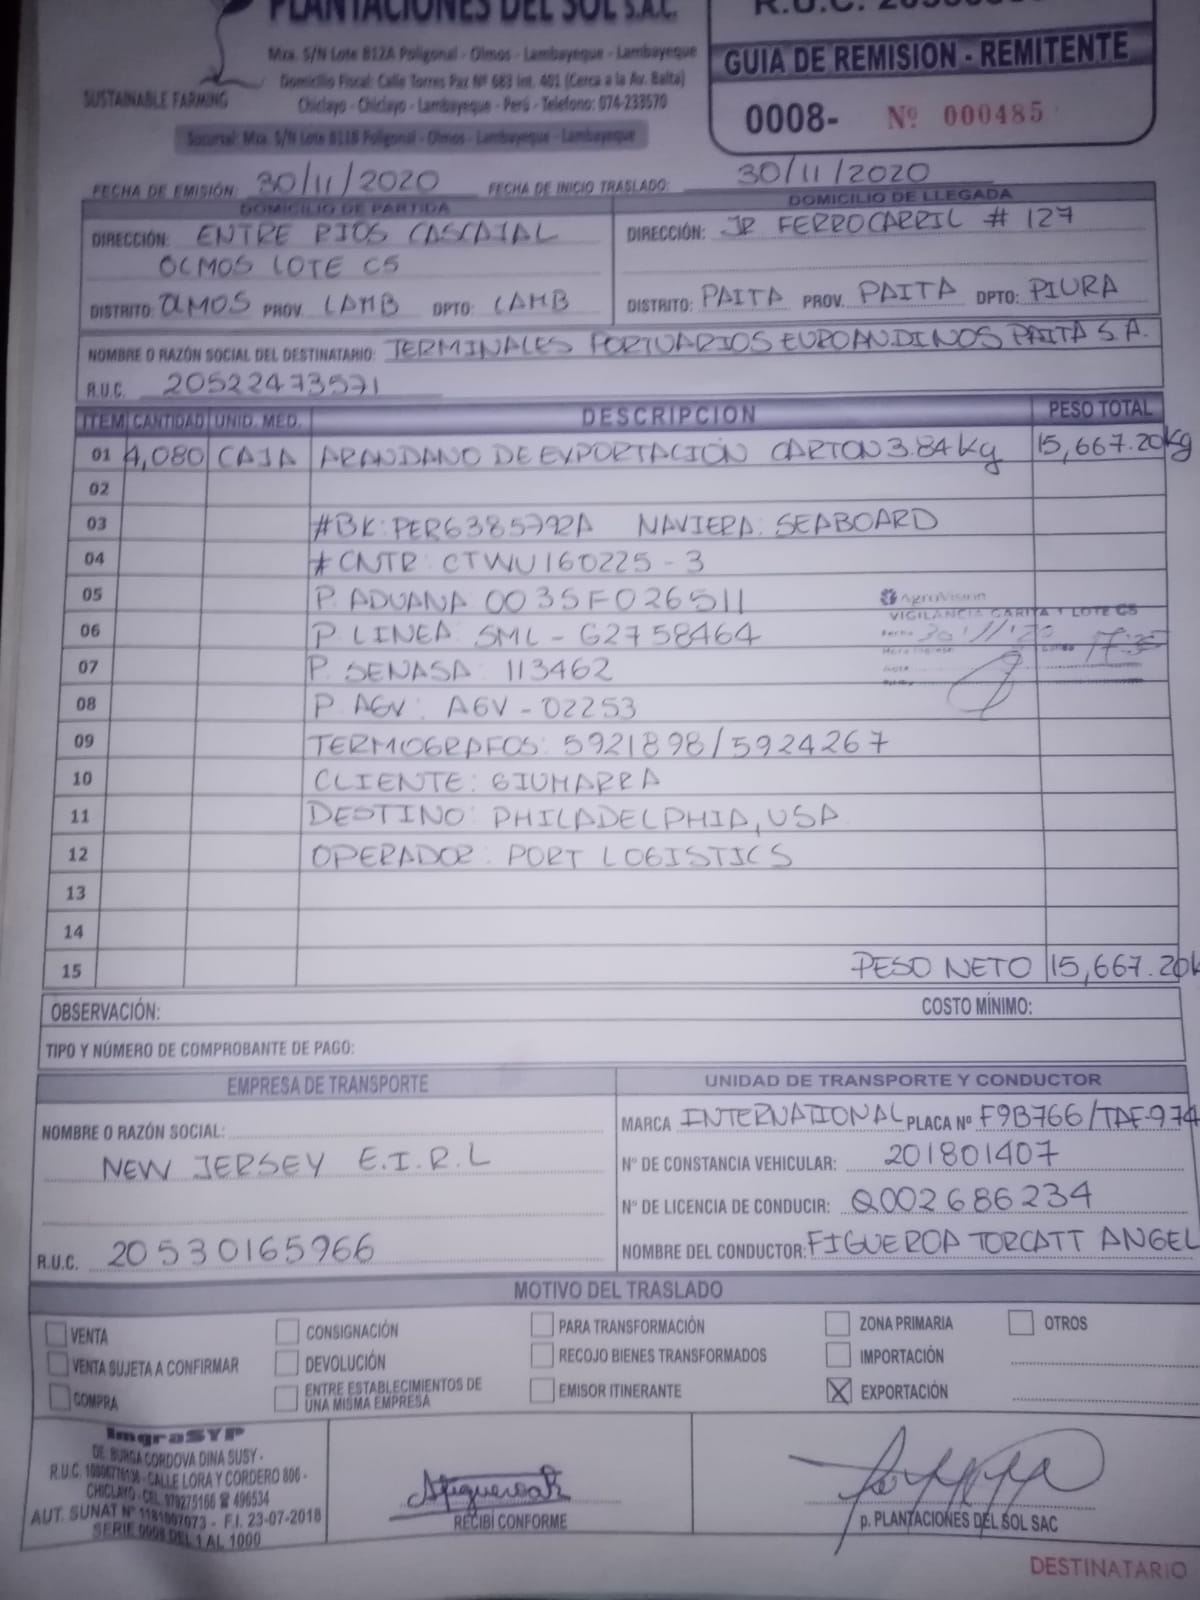 PLANTACIONES DEL SOL S.A.C.
Mza. S/N Lote B12A Poligonal - Olmos - Lambayeque - Lambayeque
Domicilio Fiscal: Calle Torres Paz Nº 683 Int. 401 (Cerca a la Av. Balta)
Chiclayo - Chiclayo - Lambayeque - Perú - Telefono: 074-233570
SUSTAINABLE FARMING
Sucursal: Mza. S/N Lote B11B Poligonal - Olmos - Lambayeque - Lambayeque
R.U.C.
GUIA DE REMISION - REMITENTE
0008- Nº 000485
FECHA DE EMISIÓN: 30/11/2020 FECHA DE INICIO TRASLADO: 30/11/2020
DOMICILIO DE PARTIDA
DIRECCIÓN: ENTRE RIOS CASCAJAL
OLMOS LOTE C5
DISTRITO: OLMOS PROV. LAMB DPTO: LAMB
DOMICILIO DE LLEGADA
DIRECCIÓN: JR FERROCARRIL # 127
DISTRITO: PAITA PROV. PAITA DPTO: PIURA
NOMBRE O RAZÓN SOCIAL DEL DESTINATARIO: TERMINALES PORTUARIOS EUROANDINOS PAITA S.A.
R.U.C. 20522473571
ITEM CANTIDAD UNID. MED. DESCRIPCION PESO TOTAL
01 4,080 CAJA ARANDANO DE EXPORTACIÓN CARTON 3.84 kg 15,667.20kg
02
03 #BK: PER6385792A NAVIERA: SEABOARD
04 # CNTR: CTWU160225-3
05 P. ADUANA 0035F026511
06 P. LINEA: SML - G2758464
07 P. SENASA: 113462
08 P. AGV: AGV-02253
09 TERMOGRAFOS: 5921898/5924267
10 CLIENTE: GIUMARRA
11 DESTINO: PHILADELPHIA, USA
12 OPERADOR: PORT LOGISTICS
13
14
15 PESO NETO 15,667.20k
AgroVision
VIGILANCIA GARITA 1 LOTE C5
OBSERVACIÓN: COSTO MÍNIMO:
TIPO Y NÚMERO DE COMPROBANTE DE PAGO:
EMPRESA DE TRANSPORTE
NOMBRE O RAZÓN SOCIAL:
NEW JERSEY E.I.R.L
R.U.C. 20530165966
UNIDAD DE TRANSPORTE Y CONDUCTOR
MARCA INTERNATIONAL PLACA Nº F9B766/TAF-974
Nº DE CONSTANCIA VEHICULAR: 201801407
Nº DE LICENCIA DE CONDUCIR: Q002686234
NOMBRE DEL CONDUCTOR: FIGUEROA TORCATT ANGEL
MOTIVO DEL TRASLADO
VENTA CONSIGNACIÓN PARA TRANSFORMACIÓN ZONA PRIMARIA OTROS
VENTA SUJETA A CONFIRMAR DEVOLUCIÓN RECOJO BIENES TRANSFORMADOS IMPORTACIÓN
COMPRA ENTRE ESTABLECIMIENTOS DE UNA MISMA EMPRESA EMISOR ITINERANTE X EXPORTACIÓN
ImgraSYP
DE. BURGA CORDOVA DINA SUSY -
CALLE LORA Y CORDERO 806 -
CHICLAYO - CEL. 979275166 ☎ 496534
AUT. SUNAT Nº 1181007073 - F.I. 23-07-2018
SERIE 0008 DEL 1 AL 1000
RECIBÍ CONFORME
p. PLANTACIONES DEL SOL SAC
DESTINATARIO